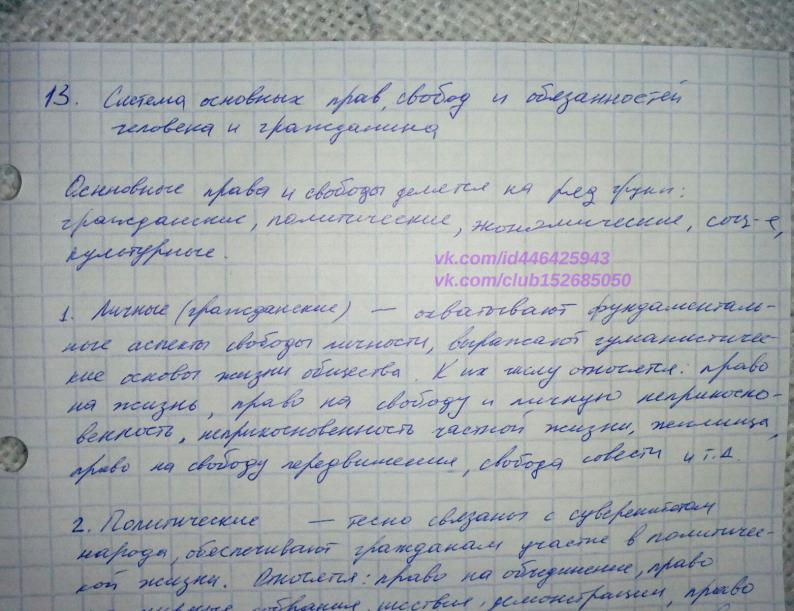 13. Система основных прав, свобод и обязанностей
человека и гражданина
Основные права и свободы делятся на ряд групп:
гражданские, политические, экономические, соц-е,
культурные.
vk.com/id446425943
vk.com/club152685050
1. Личные (гражданские) — охватывают фундаменталь-
ные аспекты свободы личности, выражают гуманистичес-
кие основы жизни общества. К их числу относятся: право
на жизнь, право на свободу и личную неприкосно-
венность, неприкосновенность частной жизни, жилища,
право на свободу передвижения, свобода совести и т.д.
2. Политические — тесно связаны с суверенитетом
народа, обеспечивают гражданам участие в политичес-
кой жизни. Относятся: право на объединение, право
собрания, шествия, демонстрации, право